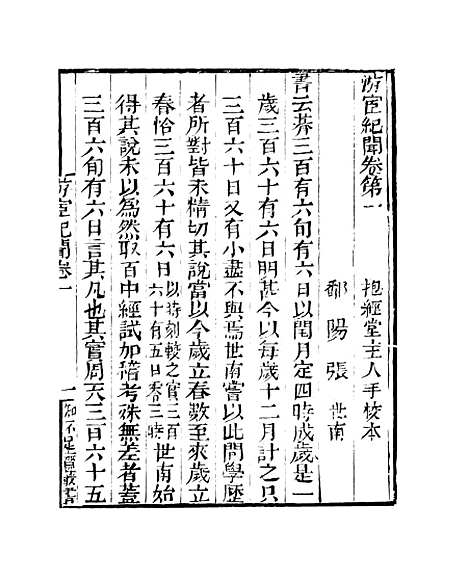 游宦紀聞卷第一
抱經堂主人手校本
鄱陽張世南
書云朞三百有六旬有六日以閏月定四時成歲是一
歲三百六十有六日明甚今以每歲十二月計之只
三百六十日又有小盡不與焉世南嘗以此問學歷
者所對皆未精切其說當以今歲立春數至來歲立
春恰三百六十有六日以時刻較之實三百六十有五日零三時世南始
得其說未以為然取百中經試加稽考殊無差者蓋
三百六旬有六日言其凡也其實周天三百六十五
游宦紀聞卷一
一
知不足齋叢書